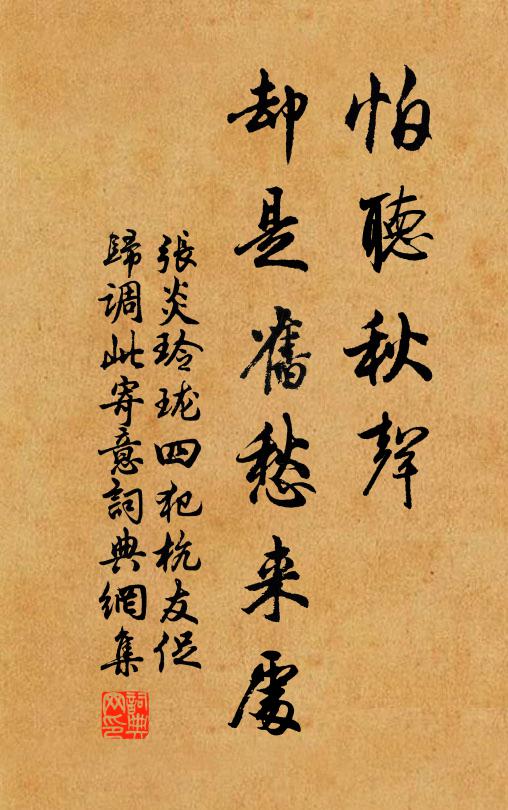 怕聽秋聲
却是舊愁来處
張炎玲瓏四犯杭友促
歸调此寄意詞典網集
詞典
网印